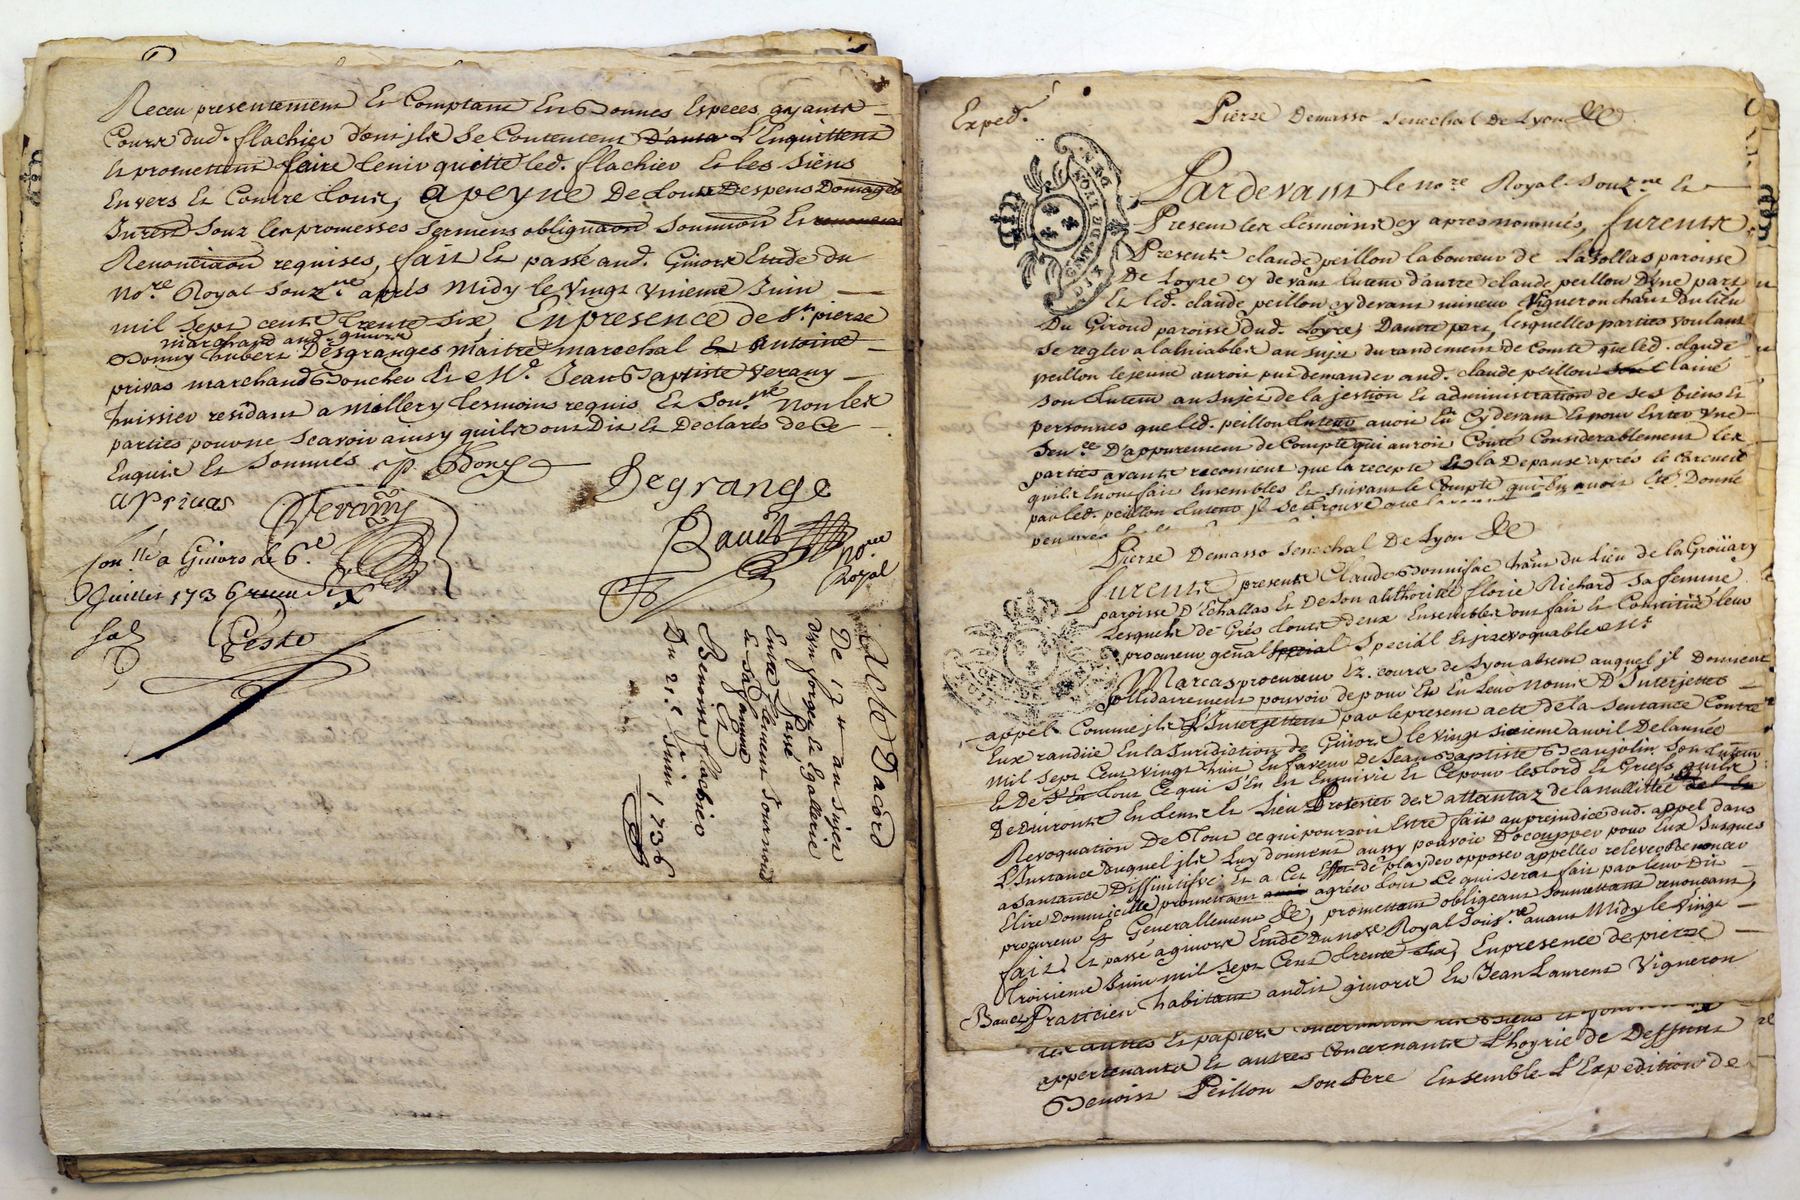 Receu presentement Et Comptant En Bonnes Especes ayants
Cours dud. flachier dont ils se Contentent L'Enquittent
Et promettent faire tenir quitte led. flachier Et les siens
Envers Et Contre tous, a peyne De tous Despens Domages
Interest souz les promesses sermens obligaon soumion Et
Renonciaon requises, fait Et passé aud. Givors Etude du
No.re Royal souz.né aprés Midy le Vingt Unieme Juin
mil sept cents trente six, En presence de Sr. pierre
marchand aud. givors
Donny hubert Desgranges Maitre marechal Et Antoine
privas marchand Boucher Et Me. Jean Baptiste Verany
huissier residant a Millery tesmoins requis Et Sou.né Non les
parties pour ne scavoir ainsy quils ont Dit Et Declarés de Ce
Enquis Et Sommés p. Dony
Degrange
aprivas Verany
Bauét No.re
Royal
Con.llé a Givors le 6.e
Juillet 1736 receu
Acte D'acord
De 17 tt au sujet
d'un forget Et Egallerie
Passé
Entre Clement Journoud
Et sa femme
Et
Benoist flachier
Du 21.e Juin 1736
Exped.r
Pierre Demasso Senechal De Lyon &c
GEN DE LYON
Pardevant le no.re Royal Souz.né Et
Present les tesmoins cy apres nommés, furents
Presents claude peillon laboureur de Lasollas paroisse
De Loyre cy devant tuteur d'autre claude peillon D'une part
Et led. claude peillon cy devant mineur Vigneron hãnt Du lieu
Du Giroud paroisse dud. Loyre, D'autre part, lesquelles parties voulant
se regler a l'aimiable au sujet du randement de Comte que led. claude
peillon le jeune auroit put demander aud. claude peillon l'ainé
son tuteur au sujet de la gestion Et administration de ses biens Et
personnes que led. peillon tuteur avoit Eu Cy devant Et pour Eviter Une
D'appurement de Compte qui auroit Couté Considerablement les
parties ayants reconneut que la recepte Et la Depanse aprés le Carcueil
quils En ont fait Ensembles Et suivant le Compte qui En avoit Eté Donné
par led. peillon tuteur il se trouve que
Pierre Demasso Senechal De Lyon &c
furents presents Claude Bonnifac hãnt du Lieu de la Groüary
paroisse D'Echallas Et De son authorité florie Richard sa femme
Lesquels de Grés tous deux Ensembles ont fait Et Constitué leur
procureur genal special Special Et irrevoquable Mr.
Marcas procureur Ez. cours de Lyon absent auquel ils Donnent
sollidairement pouvoir de pour Eux En Leur Noms D'Interjetter
appel Comme ils L'Interjettent par le present acte de la Sentance Contre
Eux randüe En la Juridiction de Givors le vingt sixieme avril De l'année
Mil sept Cent Vingt huit En faveur de Jean Baptiste Beaujolin son tuteur
Et De tout Ce qui s'En Est Ensuivie Et Ce pour les tord Et Griefs quils
Deduiront En temt Et Lieu Protester des attentaz de la nullittée
Revoquation De tout ce qui pourroit Estre fait au prejudice dud. appel dans
L'Instance duquel ils Luy donnent aussy pouvoir D'occupper pour Eux Jusques
a santance Diffinitifve Et a Cet Effet de playder opposer appeller relever Renoncer
Elire Dommicille promettant agréer tout Ce qui serat fait par leur Dit
procureur Et Generallement &c, promettant obligeant soumettant renonçant,
fait, Et passé a givors Etude Du no.re Royal Sous.né avant Midy le Vingt
troisieme Juin mil sept Cent trente six, En presence de pierre
Bauet Pratticien habitant audit givors Et Jean Laurent Vigneron
appertenants Et autres Concernants L'hoyrie de Deffunt
Benoist Peillon son Pere Ensemble L'Expedition de